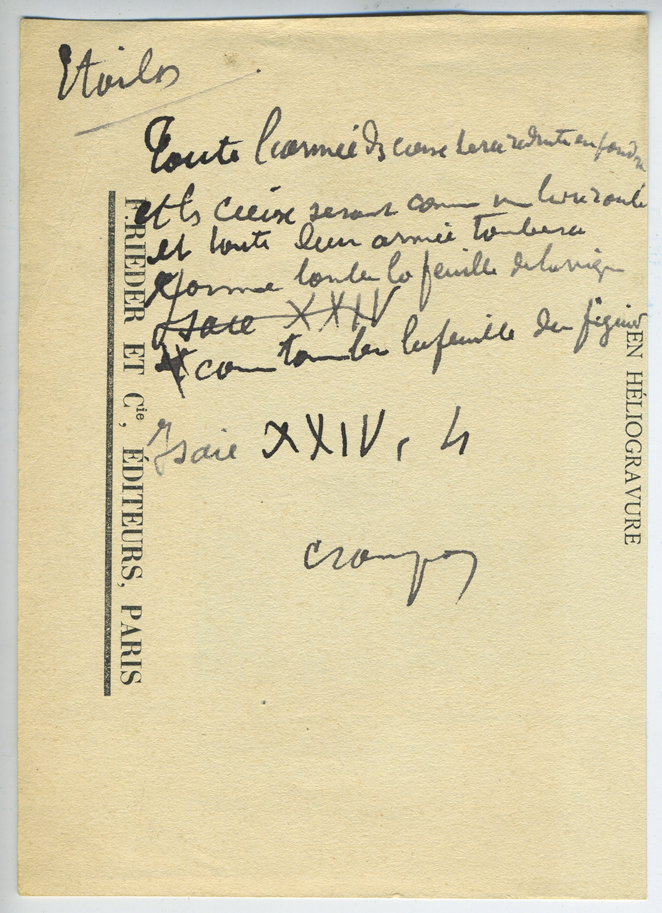 Etoiles
Toute l'armée des cieux sera réduite en poudre
et les cieux seront comme un livre roulé
et toute leur armée tombera
comme tombe la feuille de la vigne
Isaie XXIV
et comme tombe la feuille du figuier
Isaie XXXIV, 4
Crampon
F. RIEDER ET Cie, ÉDITEURS, PARIS
EN HÉLIOGRAVURE